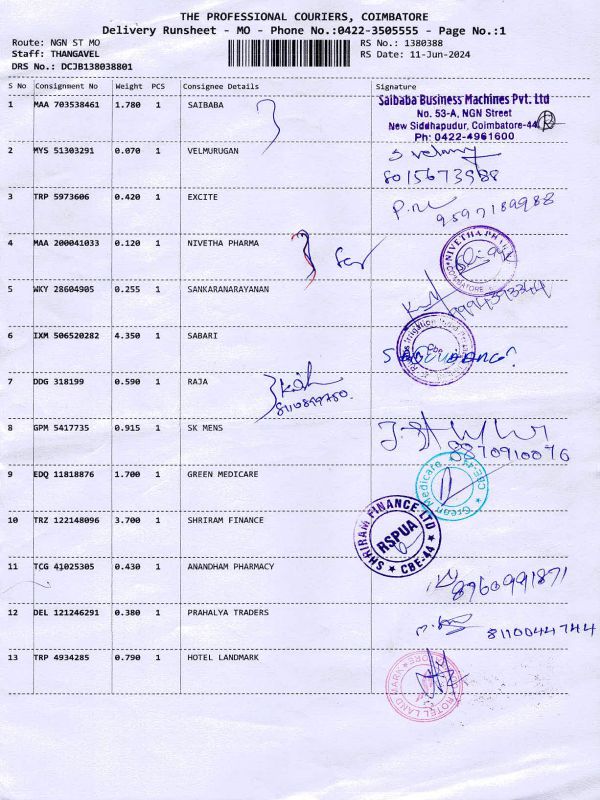 THE PROFESSIONAL COURIERS, COIMBATORE
Delivery Runsheet - MO - Phone No.:0422-3505555 - Page No.:1
Route: NGN ST MO RS No.: 1380388
Staff: THANGAVEL RS Date: 11-Jun-2024
DRS No.: DCJB138038801
S No Consignment No Weight PCS Consignee Details Signature
1 MAA 703538461 1.780 1 SAIBABA
Saibaba Business Machines Pvt. Ltd
No. 53-A, NGN Street
New Siddhapudur, Coimbatore-44
Ph: 0422-4961600
2 MYS 51303291 0.070 1 VELMURUGAN
8015673988
3 TRP 5973606 0.420 1 EXCITE
9597189988
4 MAA 200041033 0.120 1 NIVETHA PHARMA
NIVETHA PHARMA
COIMBATORE
5 WKY 28604905 0.255 1 SANKARANARAYANAN
6 IXM 506520282 4.350 1 SABARI
7 DDG 318199 0.590 1 RAJA
8110899780.
8 GPM 5417735 0.915 1 SK MENS
8870910076
9 EDQ 11818876 1.700 1 GREEN MEDICARE
Green Medicare
CBE-44
10 TRZ 122148096 3.700 1 SHRIRAM FINANCE
SHRIRAM FINANCE LTD
RSPUA
CBE-44
11 TCG 41025305 0.430 1 ANANDHAM PHARMACY
8960991871
12 DEL 121246291 0.380 1 PRAHALYA TRADERS
8110044744
13 TRP 4934285 0.790 1 HOTEL LANDMARK
HOTEL LAND MARK